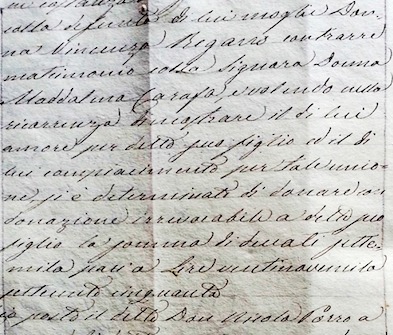 colla defunta di lui moglie Don-
na Vincenza Regano contrarre
matrimonio colla Signora Donna
Maddalena Carafa e volendo nella
ricorrenza mostrare il di lui
amore per detto suo figlio ed il di
lui compiacimento per tale unio-
ne, si è determinato di donare con
donazione irrevocabile a detto suo
figlio la somma di ducati sette-
mila pari a Lire ventinovemila
settecento cinquanta
posto il detto Don Nicola Porro a